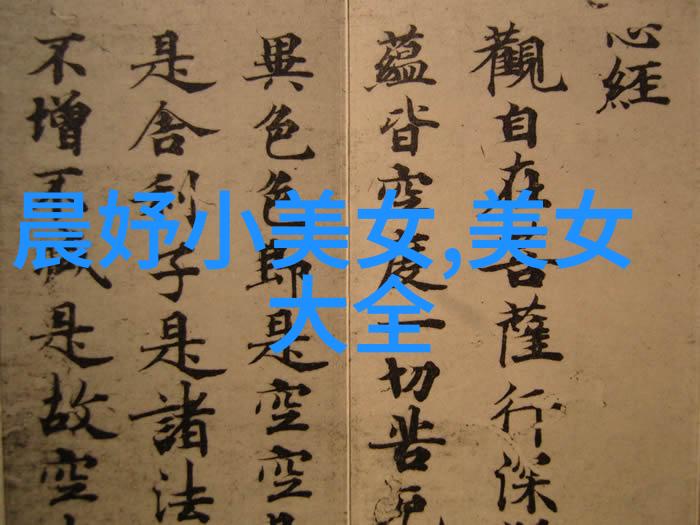 心經
觀自在菩薩行深
蘊皆空度一切苦厄
異色色即是空空
是舍利子是諸法
不增不減是故空
晨妤小美女,美女
大全